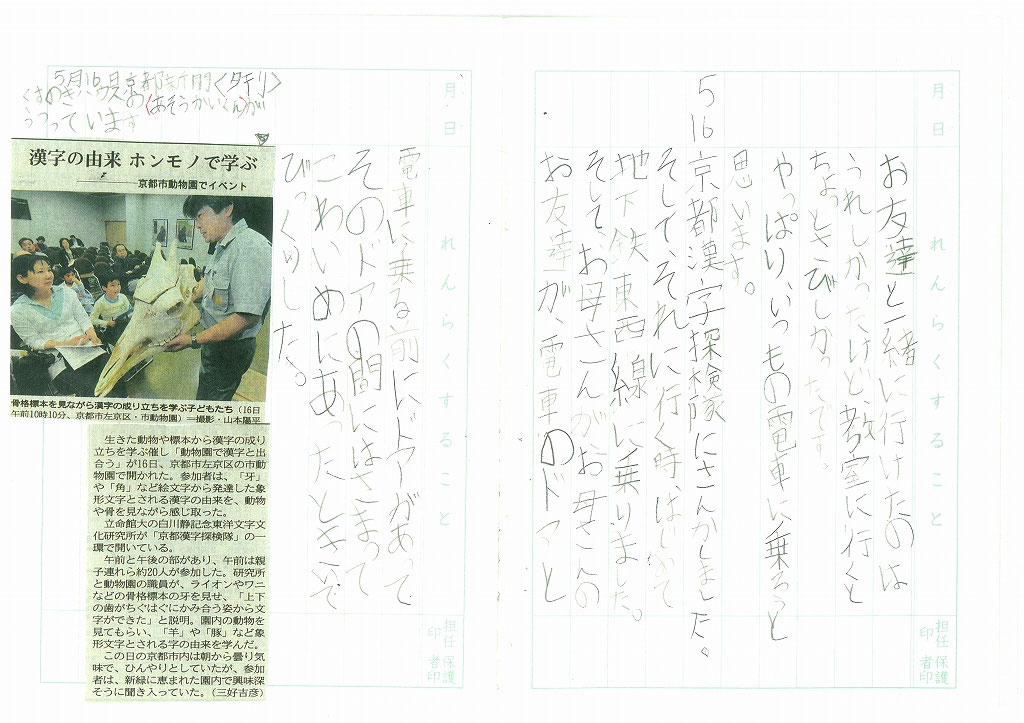 月 日
れんらくすること
お友達と一緒に行けたのは
うれしかったけど、教室に行くと
ちょっとさびしかったです
やっぱり、いつもの電車に乗ろうと
思います。
5 16 京都漢字探検隊にさんかしました。
そして、それに行く時、はじめて
地下鉄東西線に乗りました。
そして、お母さんがお母さんの
お友達が、電車のドアと
担任印
保護者印
月 日
れんらくすること
電車に乗る前にドアがあって
そのドアの間にはさまって
こわいめにあったときいて
びっくりした。
担任印
保護者印
5月16日京都新聞<夕キリ>
くすのきハウスの(あそうかいくん)が
うつっています
漢字の由来 ホンモノで学ぶ
京都市動物園でイベント
骨格標本を見ながら漢字の成り立ちを学ぶ子どもたち(16日
午前10時10分、京都市左京区・市動物園)=撮影・山本陽平
生きた動物や標本から漢字の成り
立ちを学ぶ催し「動物園で漢字と出
合う」が16日、京都市左京区の市動
物園で開かれた。参加者は、「牙」
や「角」など絵文字から発達した象
形文字とされる漢字の由来を、動物
や骨を見ながら感じ取った。
立命館大の白川静記念東洋文字文
化研究所が「京都漢字探検隊」の一
環で開いている。
午前と午後の部があり、午前は親
子連れら約20人が参加した。研究所
と動物園の職員が、ライオンやワニ
などの骨格標本の牙を見せ、「上下
の歯がちぐはぐにかみ合う姿から文
字ができた」と説明。園内の動物を
見てもらい、「羊」や「豚」など象
形文字とされる字の由来を学んだ。
この日の京都市内は朝から曇り気
味で、ひんやりとしていたが、参加
者は、新緑に恵まれた園内で興味深
そうに聞き入っていた。(三好吉彦)